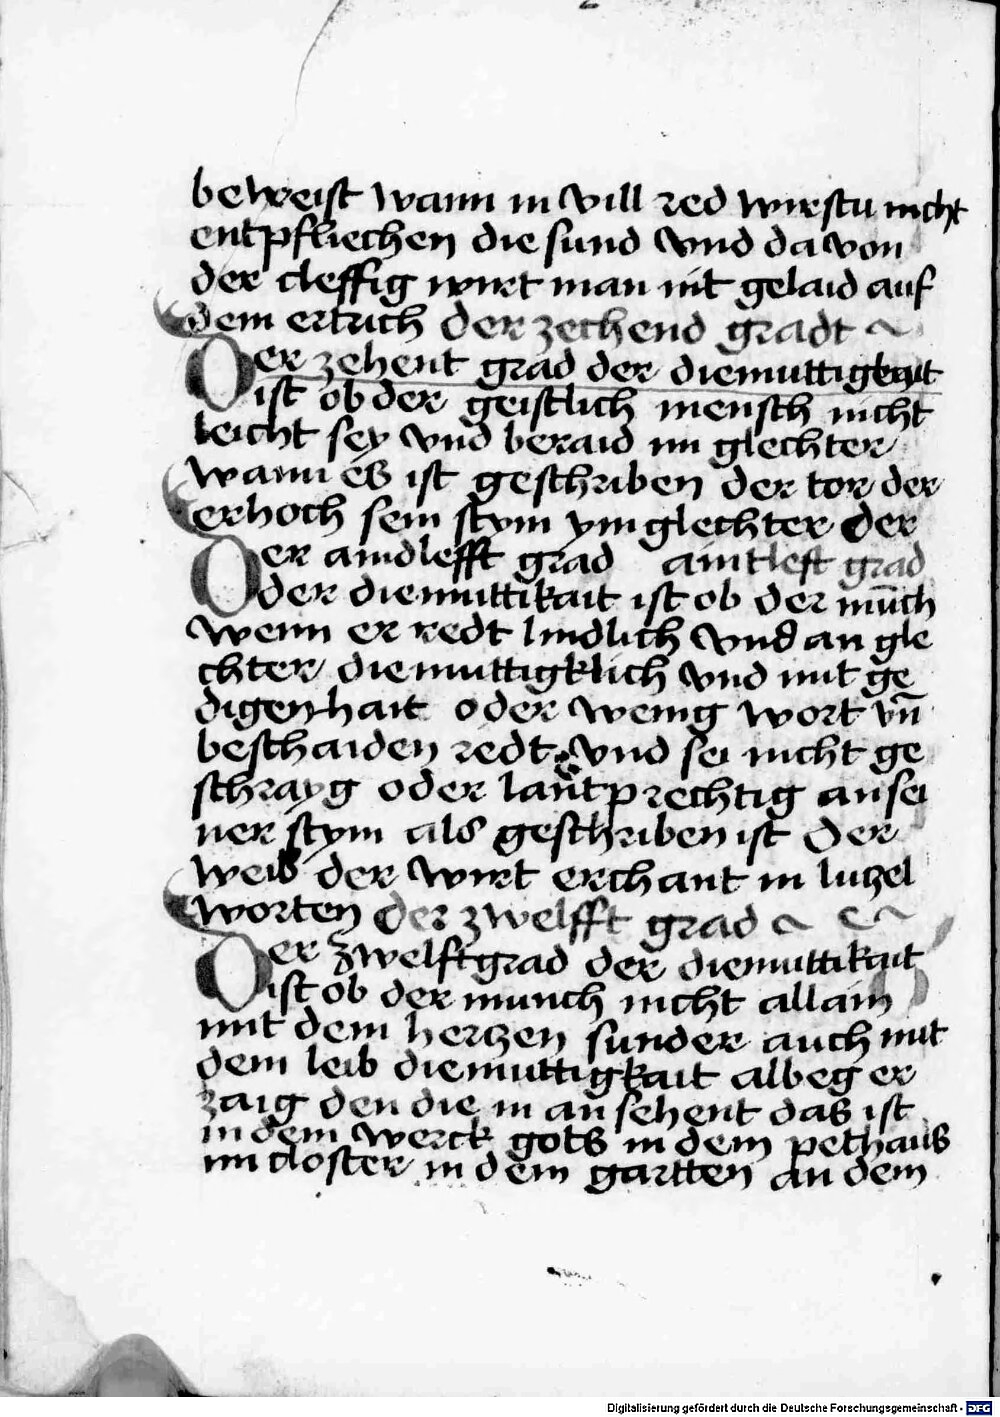 beweist wann in vill red wirstu nicht
entpfliechen die sund vnd da von
der cleffig wirt man nit gelaid auf
dem ertrich Der zechend gradt
Der zehent grad der diemuttigkait
ist ob der geistlich mensch nicht
leicht sey vnd beraid im glechter
wann es ist geschriben der tor der
erhoch sein stym ym glechter Der
Der aindlefft grad aintleft grad
der diemuttikait ist ob der mūch
wenn er redt lindlich vnd an gle
chter diemuttigklich vnd mit ge
digenhait oder wenig wort vn̄
beschaiden redt vnd sei nicht ge
schrayg oder lautprechtig an sei
ner stym als geschriben ist Der
weis der wirt erchant in lutzel
worten Der zwelfft grad
Der zwelft grad der diemuttikait
ist ob der munch nicht allain
mit dem hertzen sunder auch mit
dem leib diemuttigkait albeg er
zaig den die in an sehent das ist
in dem werck gots in dem pethaus
im closter in dem gartten an dem
Digitalisierung gefördert durch die Deutsche Forschungsgemeinschaft - DFG